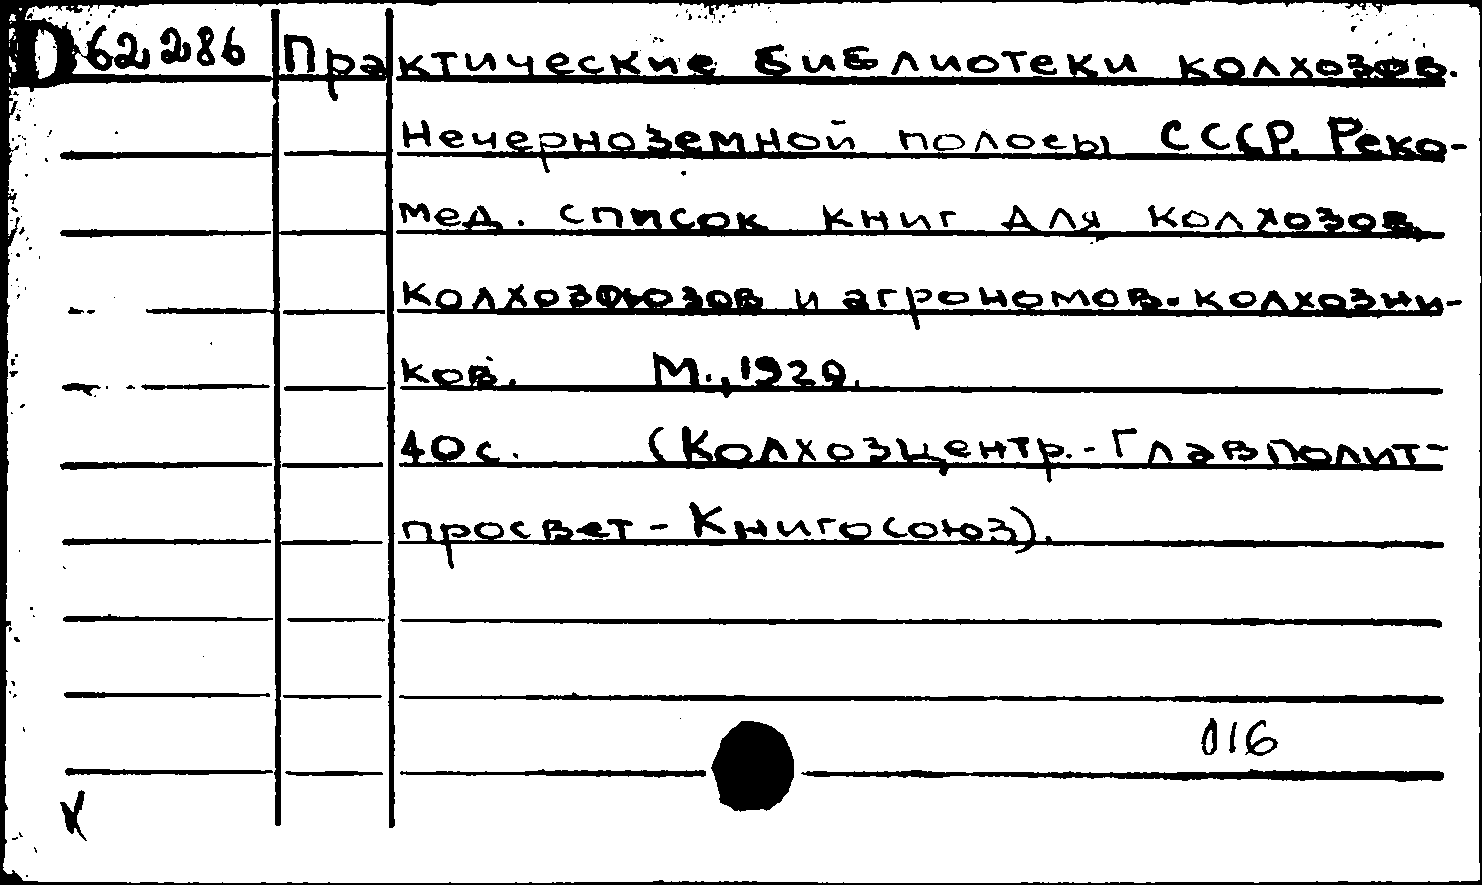 D 62286 Практические библиотеки колхозов.
Нечерноземной полосы СССР. Реко-
мед. список книг для колхозов,
колхозоюзов и агрономов-колхозни-
ков. М., 1929.
40 с. (Колхозцентр.-Главполит-
просвет-Книгосоюз).
016